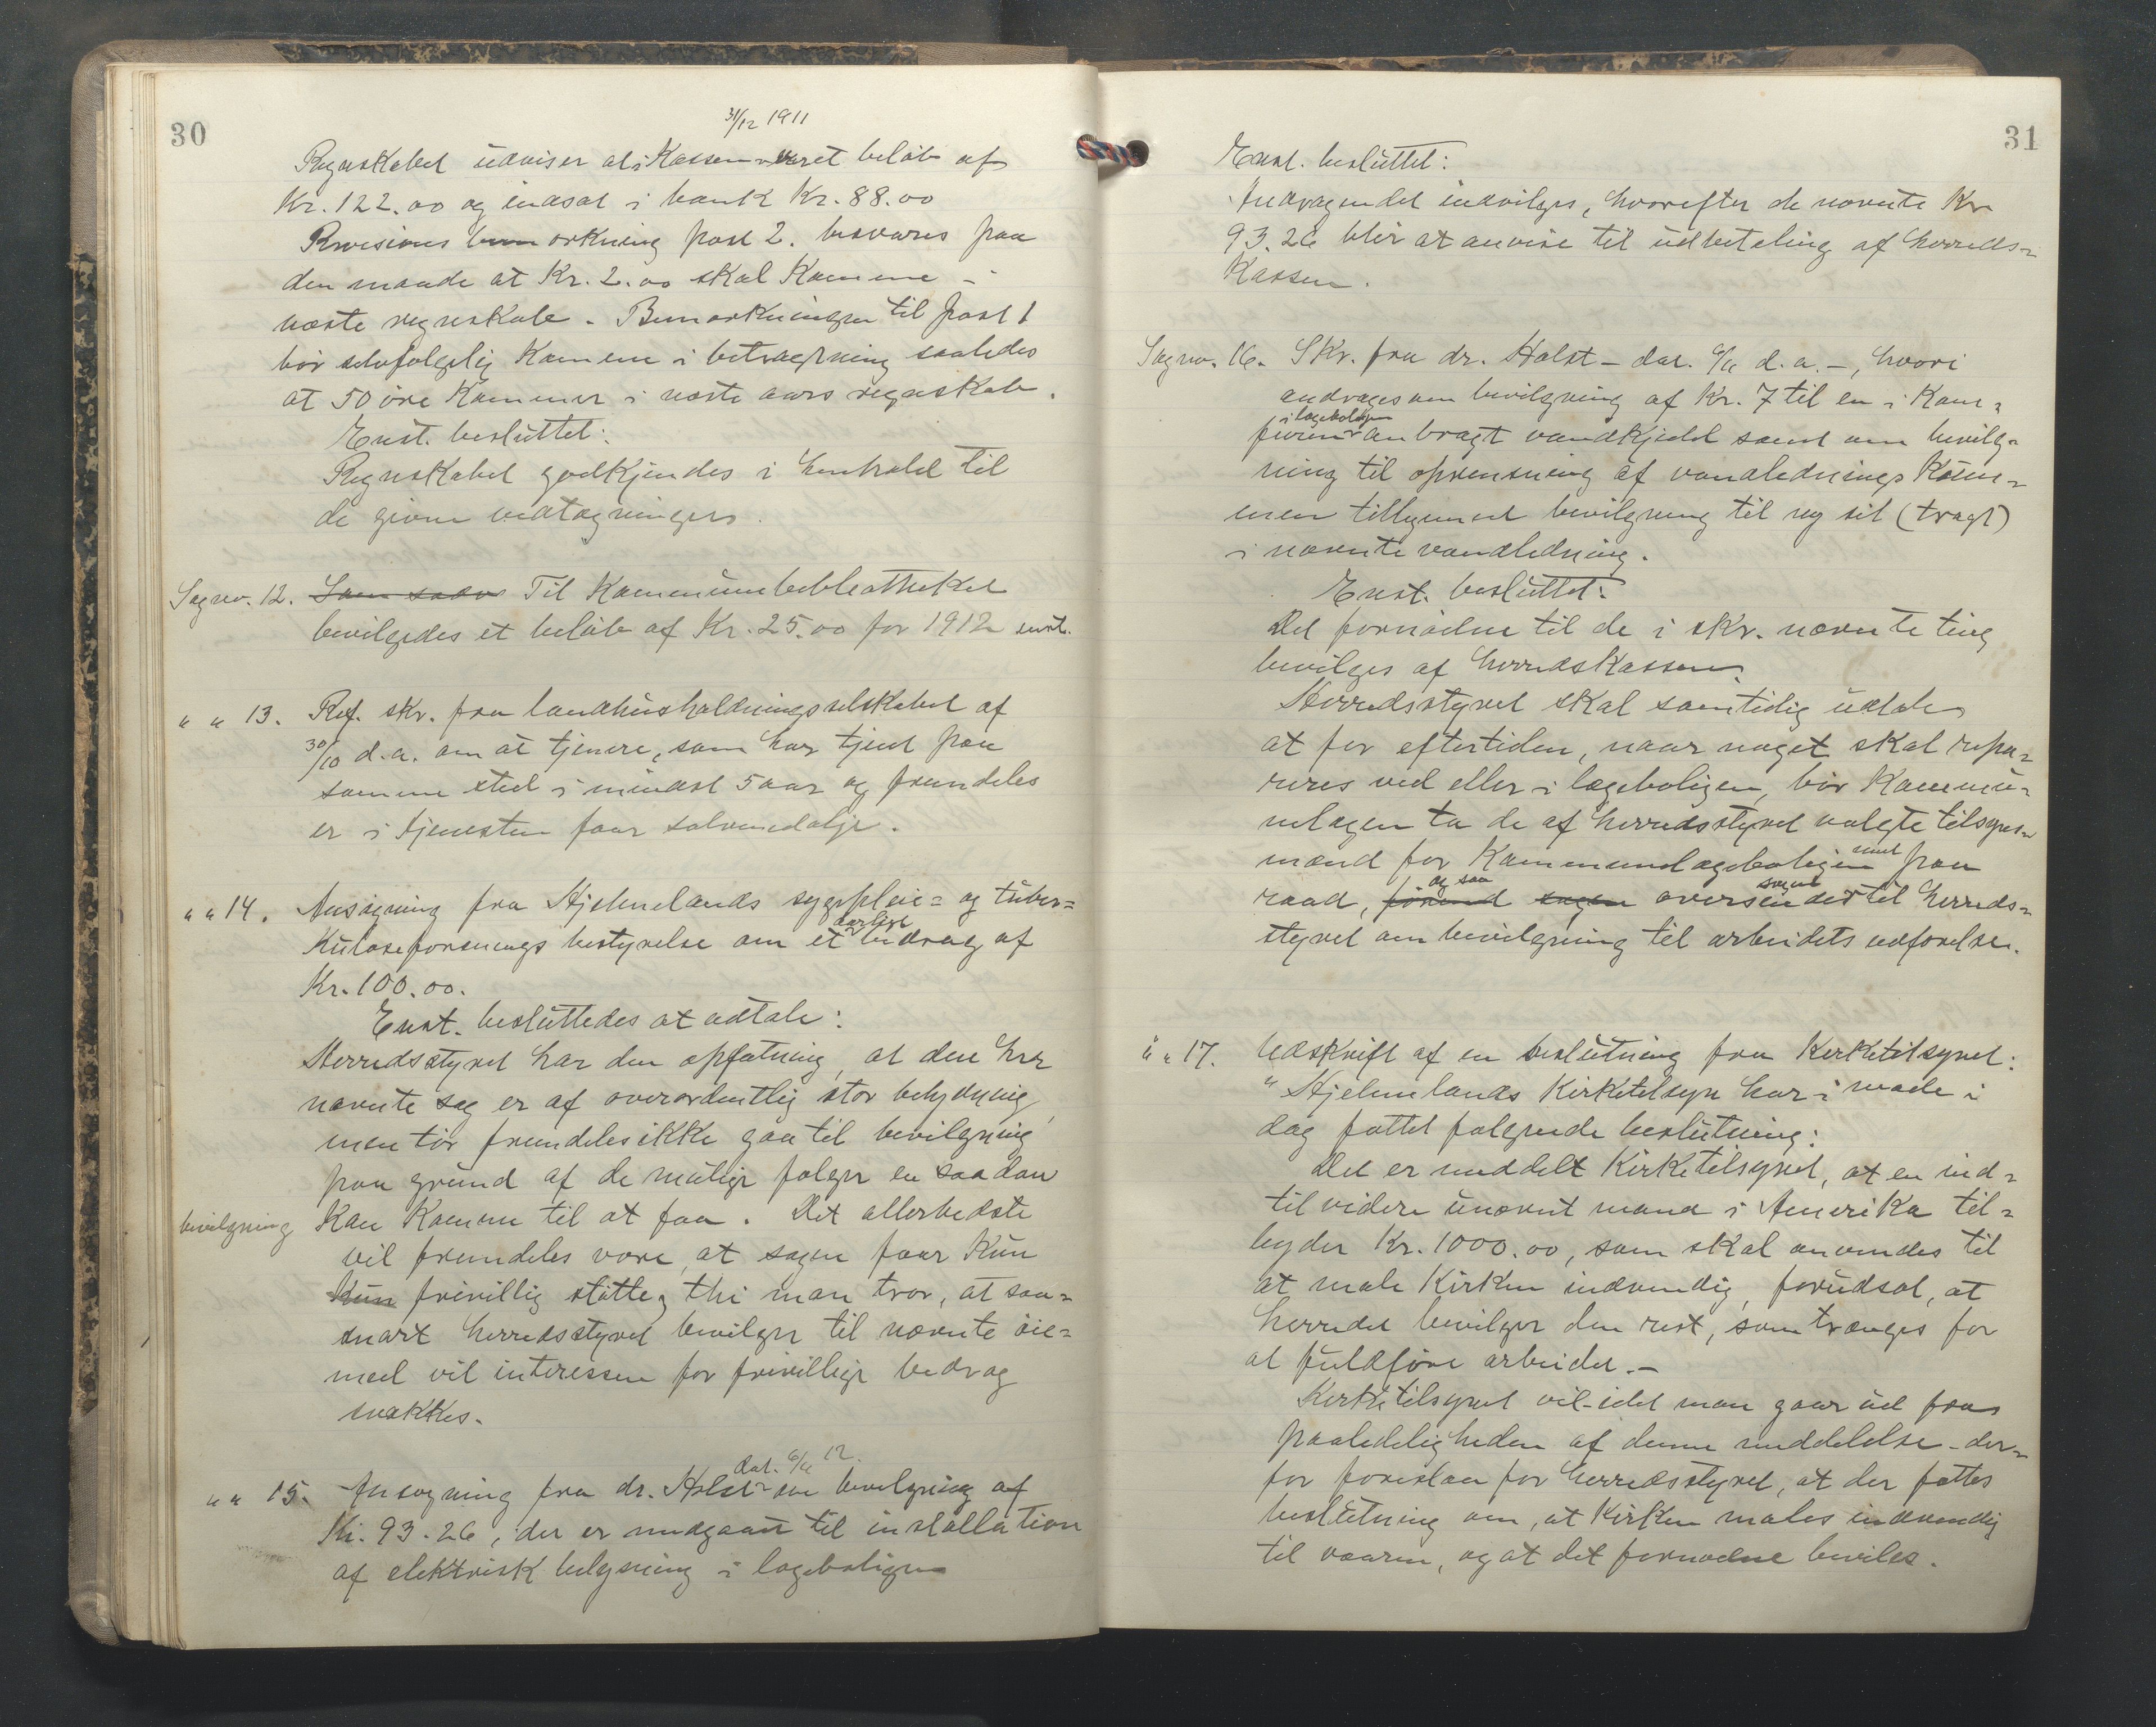 30
31/12 1911
Regnskabet udviser at i Kassen varet beløb af
Kr. 122.00 og indsat i bank Kr. 88.00
Revisions bemerkning post 2. besvares paa
den maade at Kr. 2.00 skal komme i
næste regnskab. Bemærkningen til post 1
bør selvfølgelig komme i betragtning saaledes
at 50 øre kommer i næste aars regnskab.
Enst. besluttet:
Regnskabet godkjendes i henhold til
de givne vedtagninger.
Sag no. 12. Til Kommunebibliotheket
bevilgedes et beløb af Kr. 25.00 for 1912 enst.
" " 13. Ref. skr. fra landhusholdningsselskabet af
30/10 d.a. om at tjenere, som har tjent paa
samme sted i mindst 5 aar og fremdeles
er i tjenesten faar sølvmedalje.
" " 14. Ansøgning fra Hjelmelands sygepleie= og tuber=
kuloseforenings bestyrelse om et aarligt bidrag af
Kr. 100.00.
Enst. besluttedes at udtale:
Herredsstyret har den opfatning, at den her
nævnte sag er af overordentlig stor betydning,
men tør fremdeles ikke gaa til bevilgning
paa grund af de mulige følger en saadan
bevilgning kan komme til at faa. Det allerbedste
vil fremdeles være, at sagen faar kun
kun frivillig støtte, thi man tror, at saa=
snart herredsstyret bevilger til nævnte øie=
med vil interessen for frivillige bidrag
svækkes.
" " 15. Ansøgning fra dr. Holst dat. 6/11 12. om bevilgning af
Kr. 93.26, der er medgaaet til installation
af elektrisk belysning i lægeboligen
31
Enst. besluttet:
Andragendet indvilges, hvorefter de nævnte Kr
93.26 blir at anvise til udbetaling af herreds=
kassen.
Sag no. 16. Skr. fra dr. Holst – dat. 6/11 d.a. –, hvori
andrages om bevilgning af Kr. 7 til en i kom=
furen i lægeboligen anbragt vandkjedel samt om bevilg=
ning til oprensning af vandlednings kum=
men tillige med bevilgning til ny sil (tragt)
i nævnte vandledning.
Enst. besluttet:
Det fornødne til de i skr. nævnte ting
bevilges af herredskassen.
Herredsstyret skal samtidig udtale
at for eftertiden, naar noget skal repa=
reres ved eller i lægeboligen, bør kommu=
nelægen ta de af herredsstyret valgte tilsyns=
mænd for kommunelægeboligen med paa
raad, og saa forend sagen oversendes sagen til herreds=
styret om bevilgning til arbeidets udførelse.
" " 17. Udskrift af en beslutning fra Kirketilsynet:
"Hjelmelands Kirketilsyn har i møde i
dag fattet følgende beslutning:
Det er meddelt Kirketilsynet, at en ind=
til videre unævnt mand i Amerika til=
byder Kr. 1000.00, som skal anvendes til
at male Kirken indvendig, forudsat, at
herredet bevilger den rest, som trænges for
at fuldføre arbeidet. –
Kirketilsynet vil – idet man gaar ud fra
paalideligheden af denne meddelelse – der=
for foreslaa for herredsstyret, at der fattes
beslutning om, at Kirken males indvendig
til vaaren, og at det fornødne beviles.